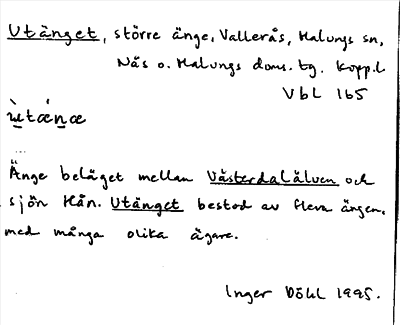 Utänget, större änge, Vallerås, Malungs sn,
Nås o. Malungs doms. tg. Kopp.l
VbL 165
ùtæ´næ
Änge beläget mellan Västerdalälven och
sjön Hån. Utänget bestod av flera ängen,
med många olika ägare.
Inger Döhl 1995.